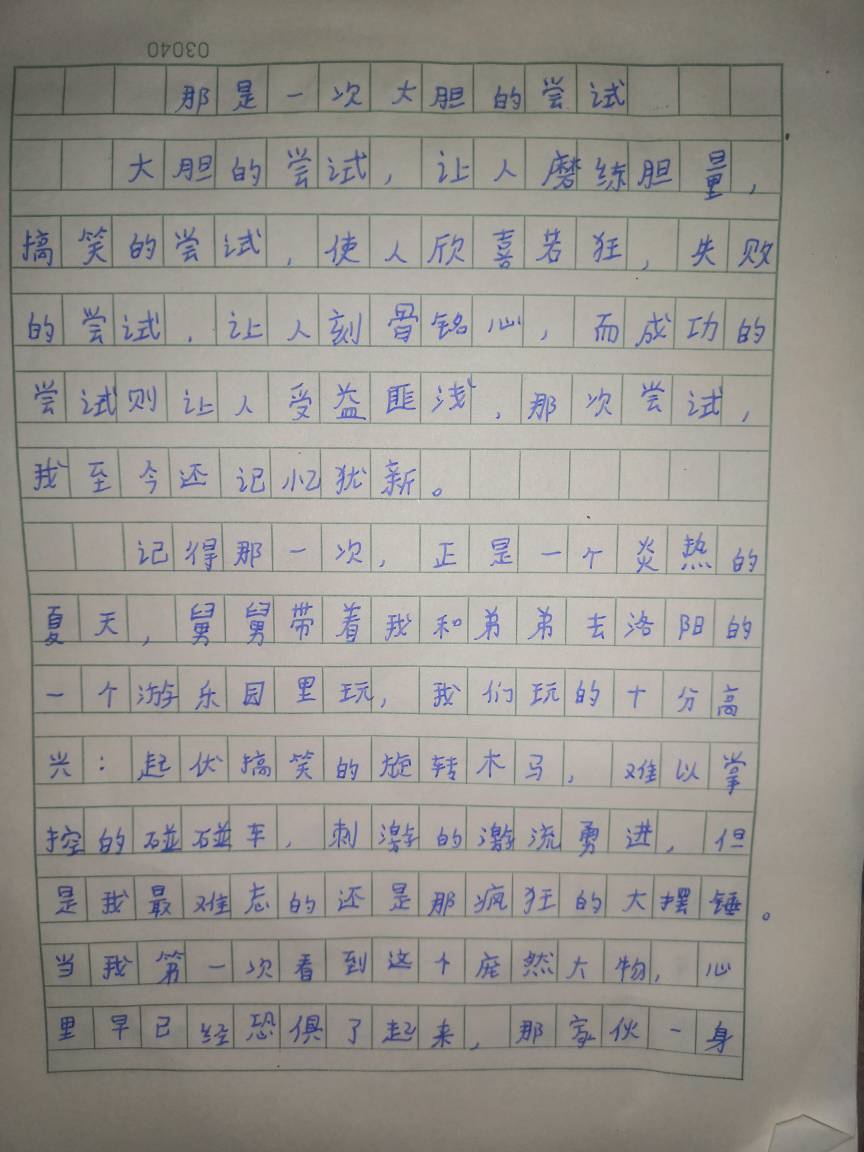 03040
那是一次大胆的尝试
大胆的尝试，让人磨练胆量，
搞笑的尝试，使人欣喜若狂，失败
的尝试，让人刻骨铭心，而成功的
尝试则让人受益匪浅，那次尝试，
我至今还记忆犹新。
记得那一次，正是一个炎热的
夏天，舅舅带着我和弟弟去洛阳的
一个游乐园里玩，我们玩的十分高
兴：起伏搞笑的旋转木马，难以掌
控的碰碰车，刺激的激流勇进，但
是我最难忘的还是那疯狂的大摆锤。
当我第一次看到这个庞然大物，心
里早已经恐惧了起来，那家伙一身